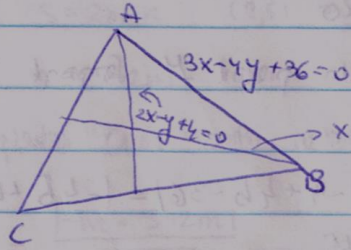 A
3x-4y+36=0
2x-y+4=0
x
B
C